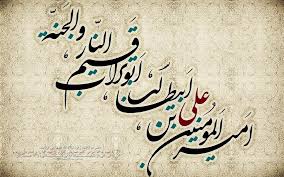 امیر المومنین
علی بن
ابیطالب
ابوتراب
قسیم
النار والجنة